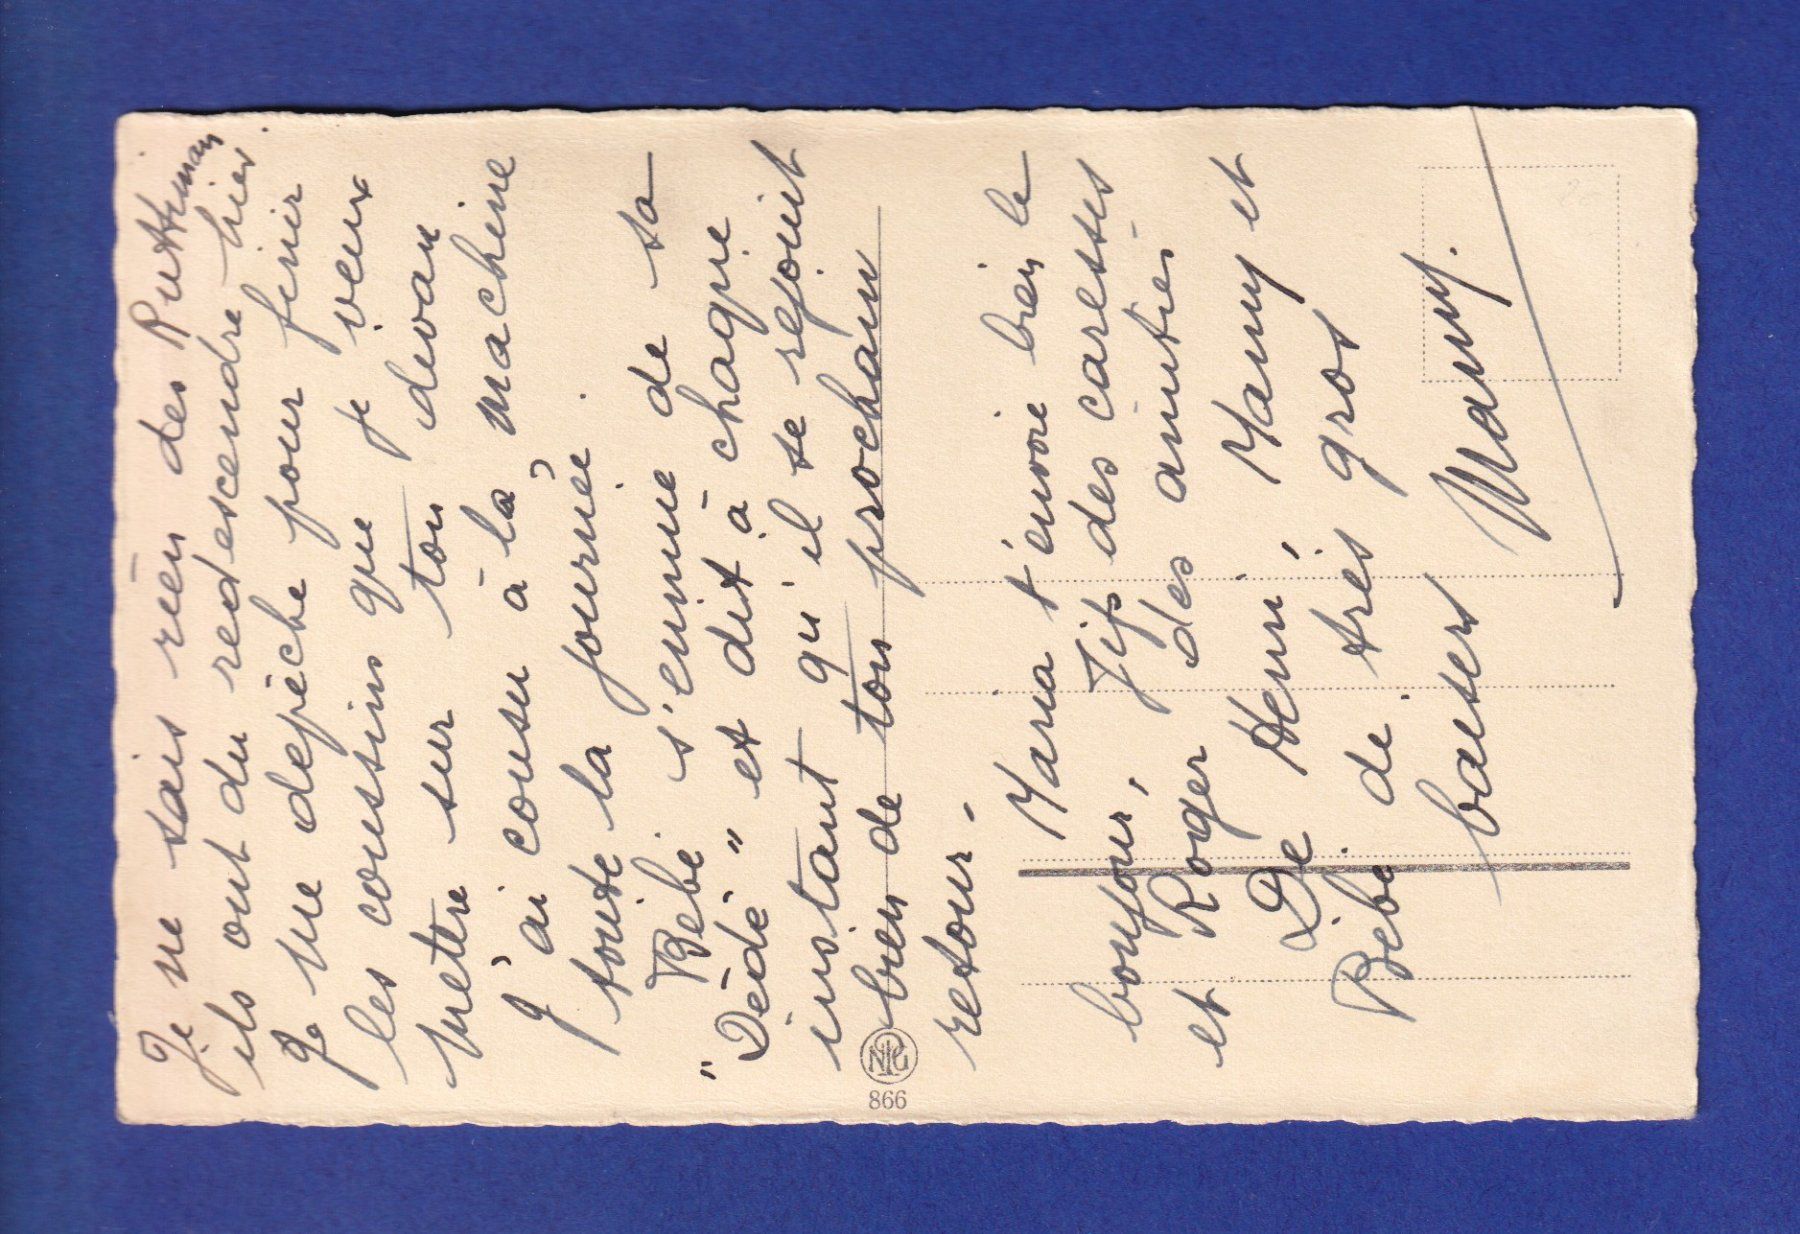 Je ne sais rien des Ruttiman
ils ont du redescendre hier
Je me dépèche pour finir
les coussins que je veux
mettre sur ton divan
J'ai cousu à la machine
toute la journée.
Bébé s'ennuie de sa
"Dèdé" et dit à chaque
instant qu'il se rejouit
bien de ton prochain
retour.
Maria t'envoie bien le
bonjour, Jips des caresses
et Roger des amitiés
De Henri, Mamy et
Bébé de très gros
baisers Mamy.
NPG
866